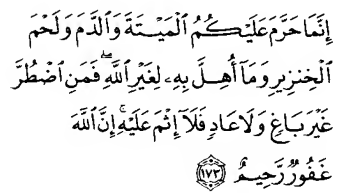 إِنَّمَا حَرَّمَ عَلَيْكُمُ ٱلْمَيْتَةَ وَٱلدَّمَ وَلَحْمَ
ٱلْخِنزِيرِ وَمَآ أُهِلَّ بِهِۦ لِغَيْرِ ٱللَّهِ ۖ فَمَنِ ٱضْطُرَّ
غَيْرَ بَاغٍ وَلَا عَادٍ فَلَآ إِثْمَ عَلَيْهِ ۚ إِنَّ ٱللَّهَ
غَفُورٌ رَّحِيمٌ ١٧٣